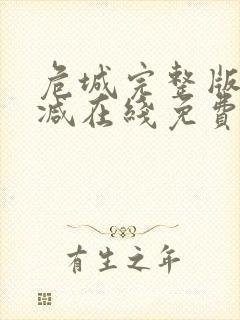 危城完整版
減在綫免費
有生之年